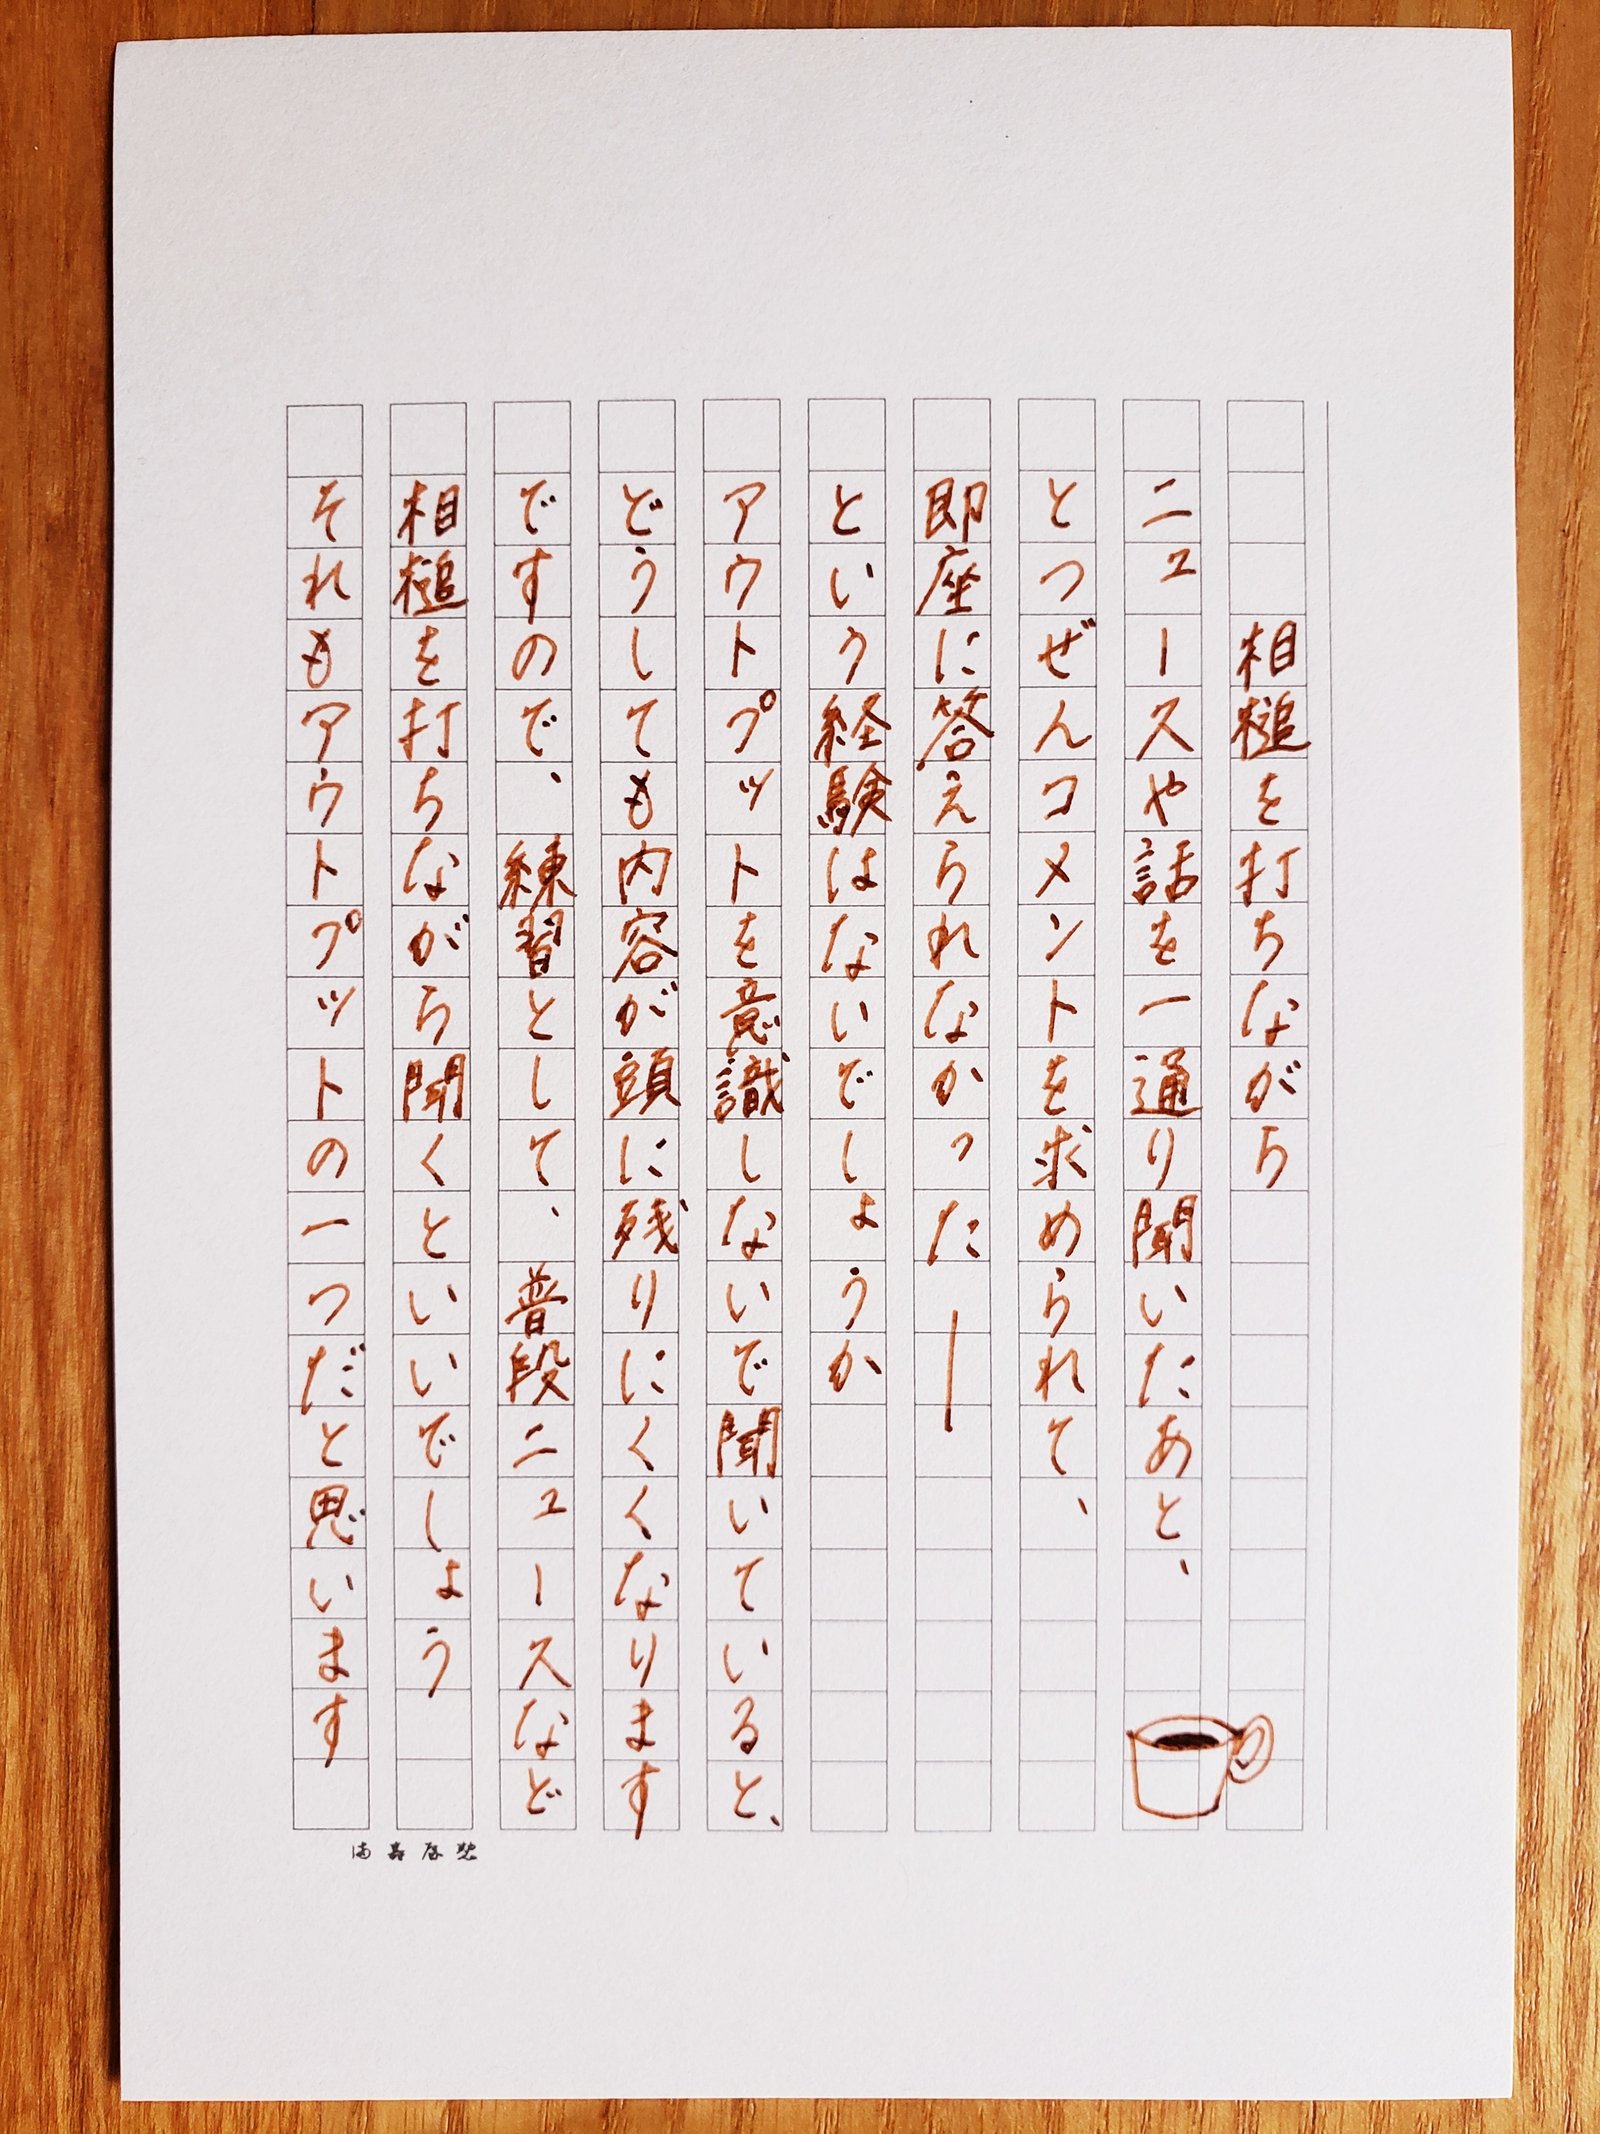 相槌を打ちながら
ニュースや話を一通り聞いたあと、
とつぜんコメントを求められて、
即座に答えられなかった―
という経験はないでしょうか
アウトプットを意識しないで聞いていると、
どうしても内容が頭に残りにくくなります
ですので、練習として、普段ニュースなど
相槌を打ちながら聞くといいでしょう
それもアウトプットの一つだと思います